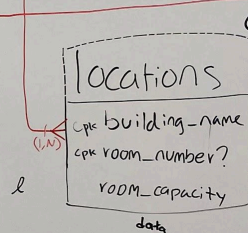 locations
cpk building_name
(1,N)
cpk room_number?
l
room_capacity
data